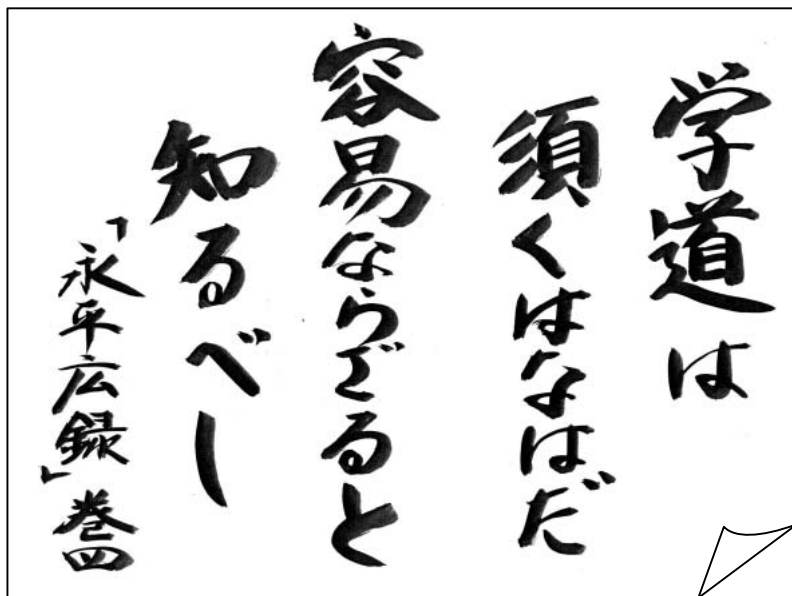 学道は
須くはなはだ
容易ならざると
知るべし
「永平広録」巻四